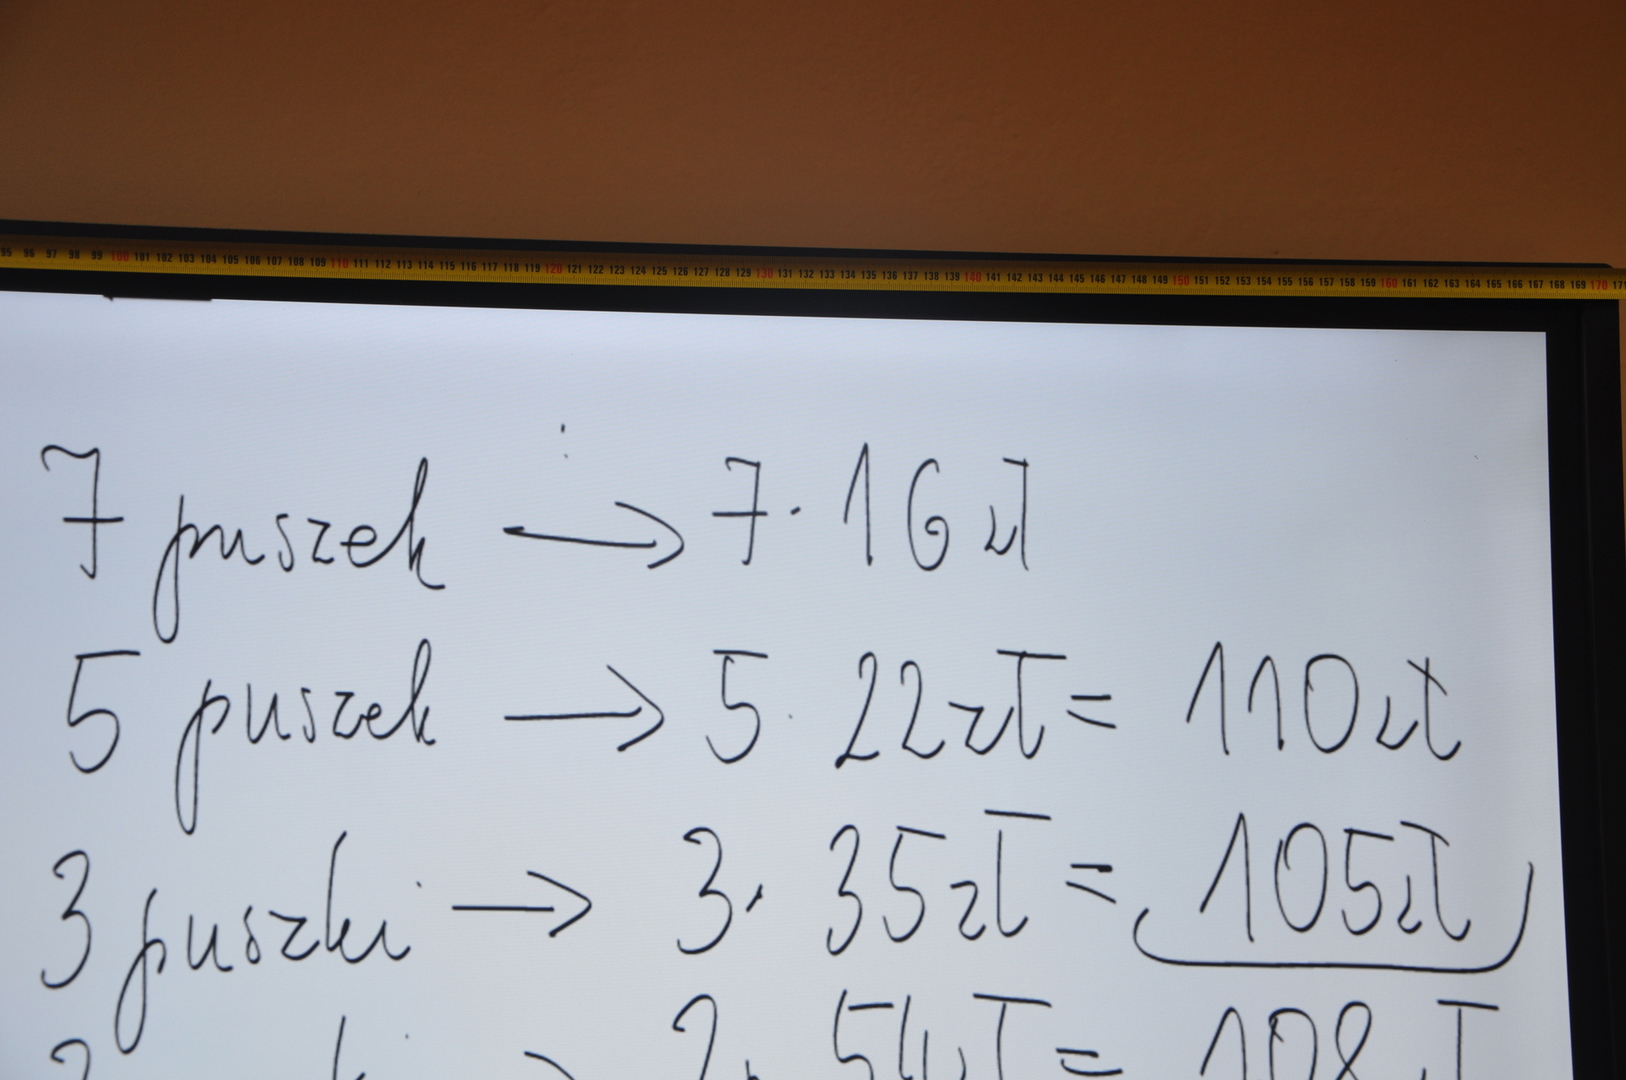 95 96 97 98 99 100 101 102 103 104 105 106 107 108 109 110 111 112 113 114 115 116 117 118 119 120 121 122 123 124 125 126 127 128 129 130 131 132 133 134 135 136 137 138 139 140 141 142 143 144 145 146 147 148 149 150 151 152 153 154 155 156 157 158 159 160 161 162 163 164 165 166 167 168 169 170 171
7 puszek → 7 · 16 zł
5 puszek → 5 · 22 zł = 110 zł
3 puszki → 3 · 35 zł = 105 zł
2 · 54 zł = 108 zł